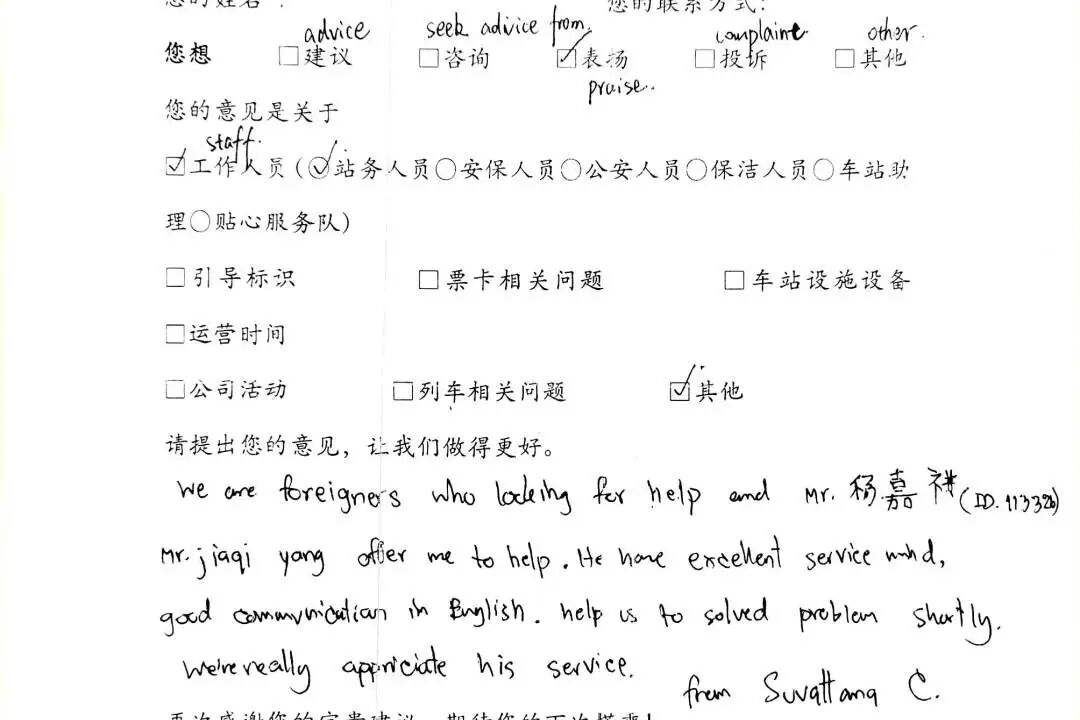 您的姓名：	您的联系方式：
advice	seek advice from.	complaint	other.
您想 □建议 □咨询 ☑表扬 □投诉 □其他
praise.
您的意见是关于
staff.
☑工作人员(☑站务人员○安保人员○公安人员○保洁人员○车站助
理○贴心服务队)
□引导标识 □票卡相关问题 □车站设施设备
□运营时间
□公司活动 □列车相关问题 ☑其他
请提出您的意见，让我们做得更好。
We are foreigners who looking for help and Mr. 杨嘉祺 (ID. 113326)
Mr. jiaqi yang offer me to help. He have excellent service mind,
good communication in English. help us to solved problem shortly.
We're really appriciate his service.
from Suvattana C.
再次感谢您的宝贵建议，期待您的下次搭乘！